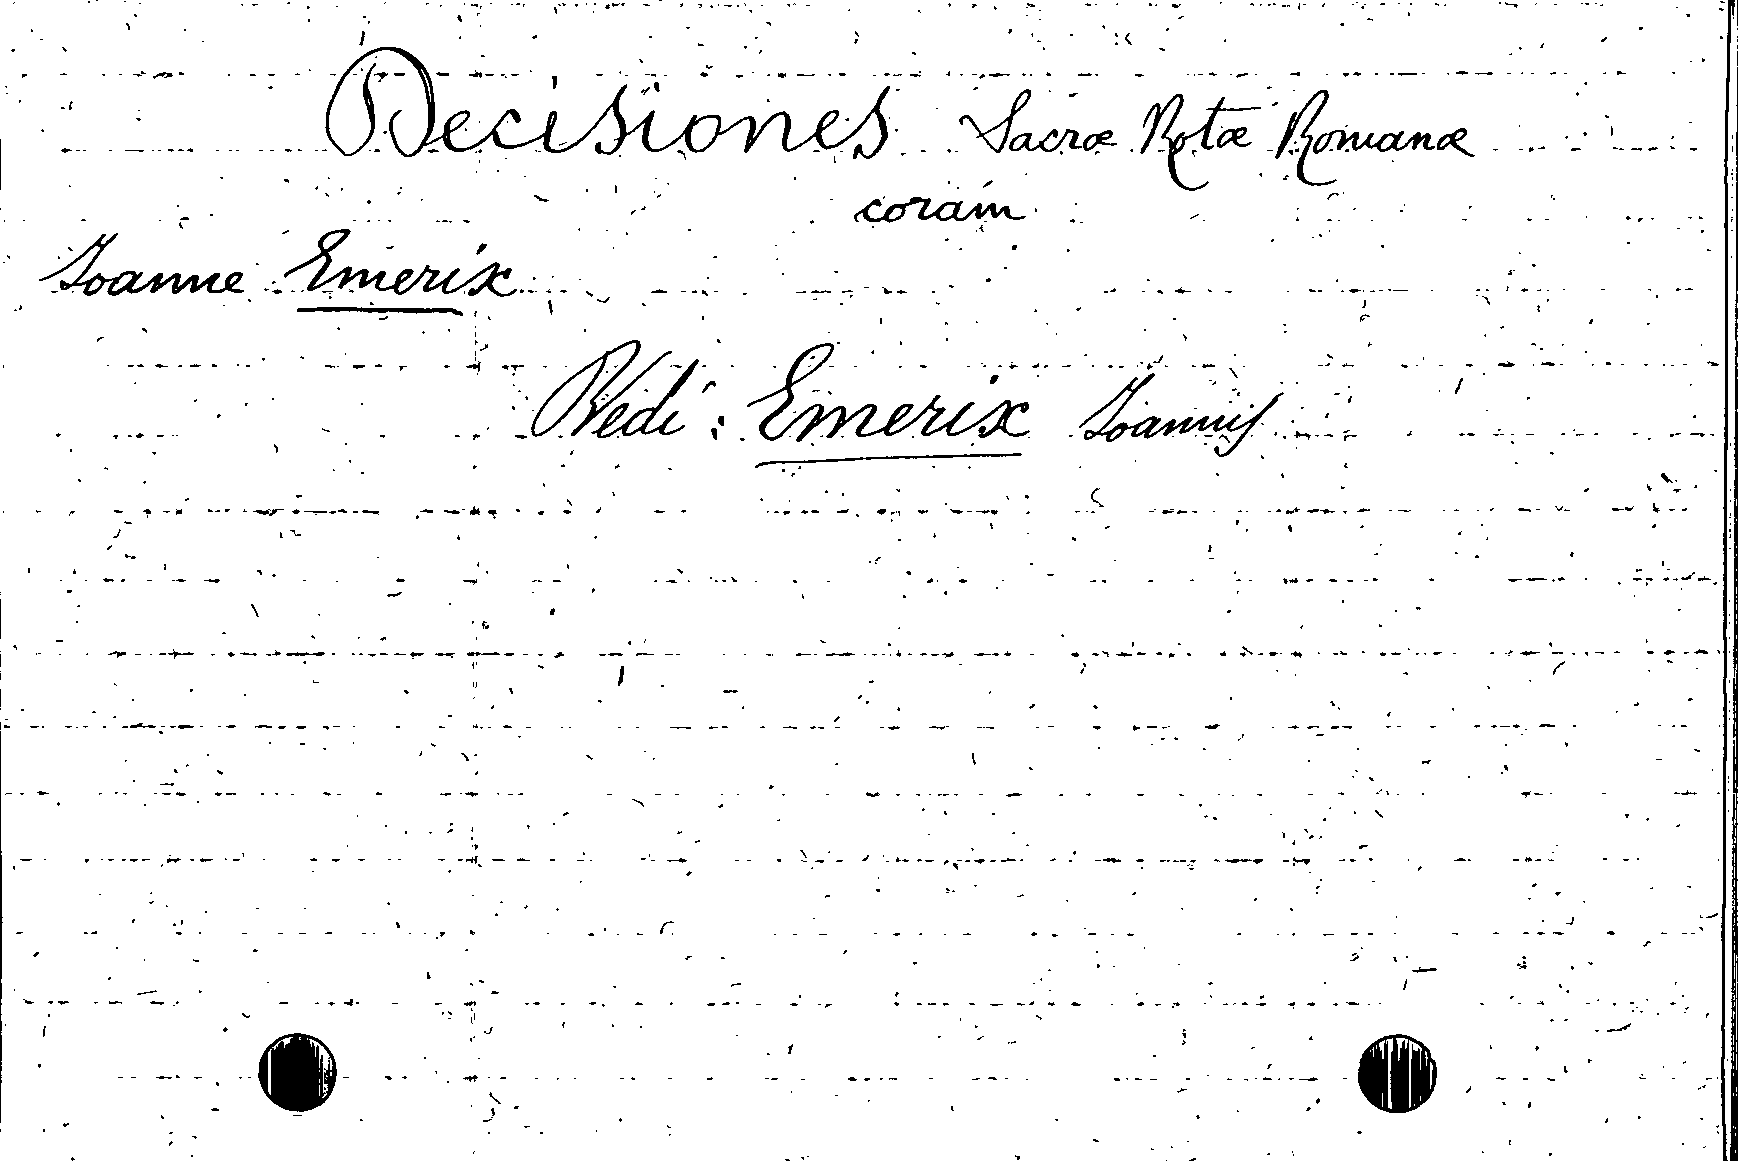 Decisiones Sacræ Rotæ Romanæ
coram
Joanne Emerix
Vedi: Emerix Joannis